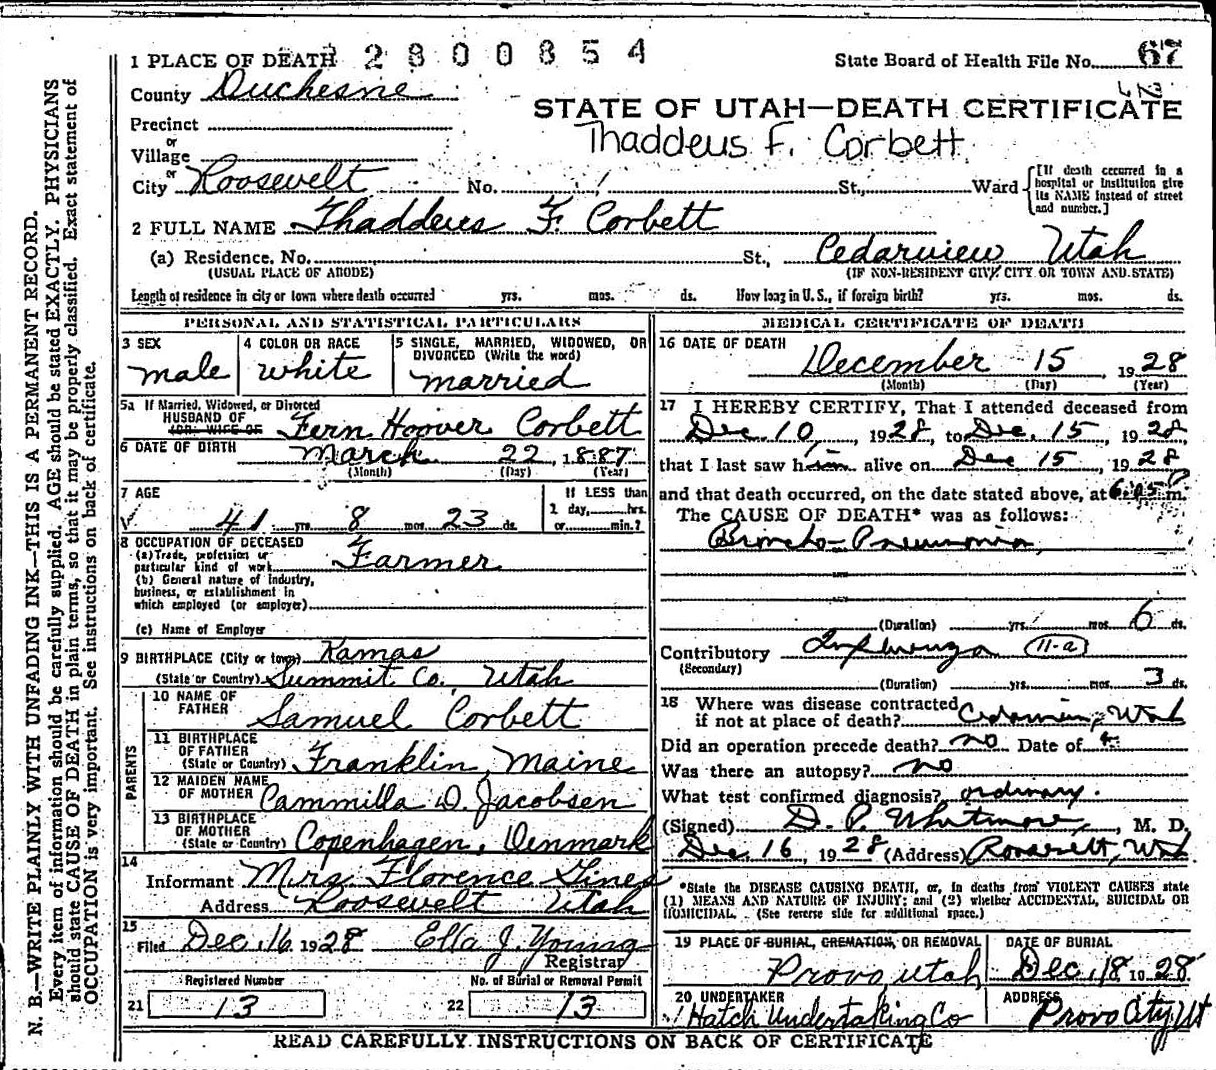 1 PLACE OF DEATH 2800854 State Board of Health File No. 67
County Duchesne
STATE OF UTAH—DEATH CERTIFICATE
Precinct
Thaddeus F. Corbett
or
Village
or
City Roosevelt No. St., Ward [If death occurred in a hospital or institution give its NAME instead of street and number.]
2 FULL NAME Thaddeus F. Corbett
(a) Residence, No. St., Cedarview Utah
(USUAL PLACE OF ABODE) (IF NON-RESIDENT GIVE CITY OR TOWN AND STATE)
Length of residence in city or town where death occurred yrs. mos. ds. How long in U. S., if foreign birth? yrs. mos. ds.
PERSONAL AND STATISTICAL PARTICULARS
3 SEX male
4 COLOR OR RACE white
5 SINGLE, MARRIED, WIDOWED, OR DIVORCED (Write the word) married
5a If Married, Widowed, or Divorced
HUSBAND OF
(OR) WIFE OF Fern Hoover Corbett
6 DATE OF BIRTH March 22 1887
(Month) (Day) (Year)
7 AGE 41 yrs. 8 mos. 23 ds.
If LESS than 1 day, hrs. or min.?
8 OCCUPATION OF DECEASED
(a) Trade, profession or particular kind of work Farmer
(b) General nature of industry, business, or establishment in which employed (or employer)
(c) Name of Employer
9 BIRTHPLACE (City or town) Kamas
(State or Country) Summit Co, Utah
PARENTS
10 NAME OF FATHER Samuel Corbett
11 BIRTHPLACE OF FATHER (State or Country) Franklin, Maine
12 MAIDEN NAME OF MOTHER Cammilla D. Jacobsen
13 BIRTHPLACE OF MOTHER (State or Country) Copenhagen, Denmark
14
Informant Mrs Florence Gines
Address Roosevelt Utah
15
Filed Dec. 16 1928 Ella J. Young
Registrar
Registered Number No. of Burial or Removal Permit
21 13 22 13
MEDICAL CERTIFICATE OF DEATH
16 DATE OF DEATH
December 15 1928
(Month) (Day) (Year)
17 I HEREBY CERTIFY, That I attended deceased from
Dec 10, 1928, to Dec. 15, 1928,
that I last saw him alive on Dec 15, 1928
and that death occurred, on the date stated above, at 6:05 P m.
The CAUSE OF DEATH* was as follows:
Broncho-Pneumonia
(Duration) yrs. mos. 6 ds.
Contributory Influenza 11-a
(Secondary)
(Duration) yrs. mos. 3 ds.
18 Where was disease contracted
if not at place of death? Cedarview, Utah
Did an operation precede death? no Date of
Was there an autopsy? no
What test confirmed diagnosis? ordinary.
(Signed) D. P. Whitmore, M. D.
Dec. 16, 1928 (Address) Roosevelt, Utah
*State the DISEASE CAUSING DEATH, or, in deaths from VIOLENT CAUSES state
(1) MEANS AND NATURE OF INJURY; and (2) whether ACCIDENTAL, SUICIDAL OR
HOMICIDAL. (See reverse side for additional space.)
19 PLACE OF BURIAL, CREMATION, OR REMOVAL Provo, utah
DATE OF BURIAL Dec. 18 1928
20 UNDERTAKER Hatch Undertaking Co
ADDRESS Provo City, Ut
READ CAREFULLY INSTRUCTIONS ON BACK OF CERTIFICATE
N. B.—WRITE PLAINLY WITH UNFADING INK—THIS IS A PERMANENT RECORD.
Every item of information should be carefully supplied. AGE should be stated EXACTLY. PHYSICIANS
should state CAUSE OF DEATH in plain terms, so that it may be properly classified. Exact statement of
OCCUPATION is very important. See instructions on back of certificate.